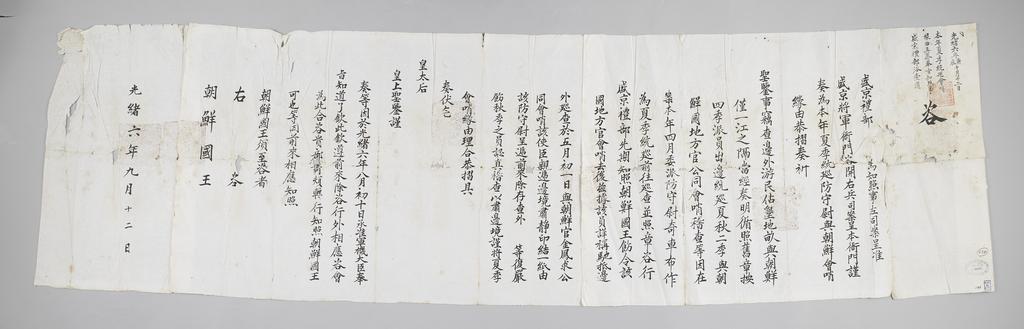 咨
盛京禮部 為知照事左司案呈准
盛京將軍衙門咨開右兵司案呈本衙門謹
奏為本年夏季統巡防守尉與朝鮮會哨
緣由恭摺奏祈
聖鑒事竊查邊外游民佔墾地畝與朝鮮
僅一江之隔當經奏明循照舊章按
四季派員出邊統巡夏秋二季與朝
鮮國地方官公同會哨稽查等因在
案本年四月委派防守尉奇車布作
為夏季統巡前往巡查並照章咨行
盛京禮部先期知照朝鮮國王飭令該
國地方官會哨去後茲據該員詳稱馳抵邊
外巡查於五月初一日與朝鮮官金鳳求公
同會哨該使臣朝過邊境肅靜印結一紙由
該防守尉呈遞前來除存查外 等復嚴
飭秋季之員認真稽查以肅邊境謹將夏季
會哨緣由理合恭摺具
奏伏乞
皇太后
皇上聖鑒謹
奏等因於光緒六年八月初十日承准軍機大臣奉
旨知道了欽此欽遵前來除咨行外相應咨會
為此合咨貴部煩轉行知照朝鮮國王
可也等因前來相應知照
朝鮮國王須至咨者
右 咨
朝 鮮 國 王
光 緒 六 年 九 月 十 二 日